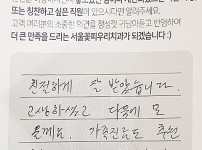 또는 칭찬하고 싶은 직원이 있으시다면 알려주세요.
고객 여러분의 소중한 의견을 정성껏 귀담아듣고 반영하여
더 큰 만족을 드리는 서울꽃피우리치과가 되겠습니다 :)
친절하게 잘 받았습니다.
고생하셨고 다음에 또
올께요. 가족진료도 추천